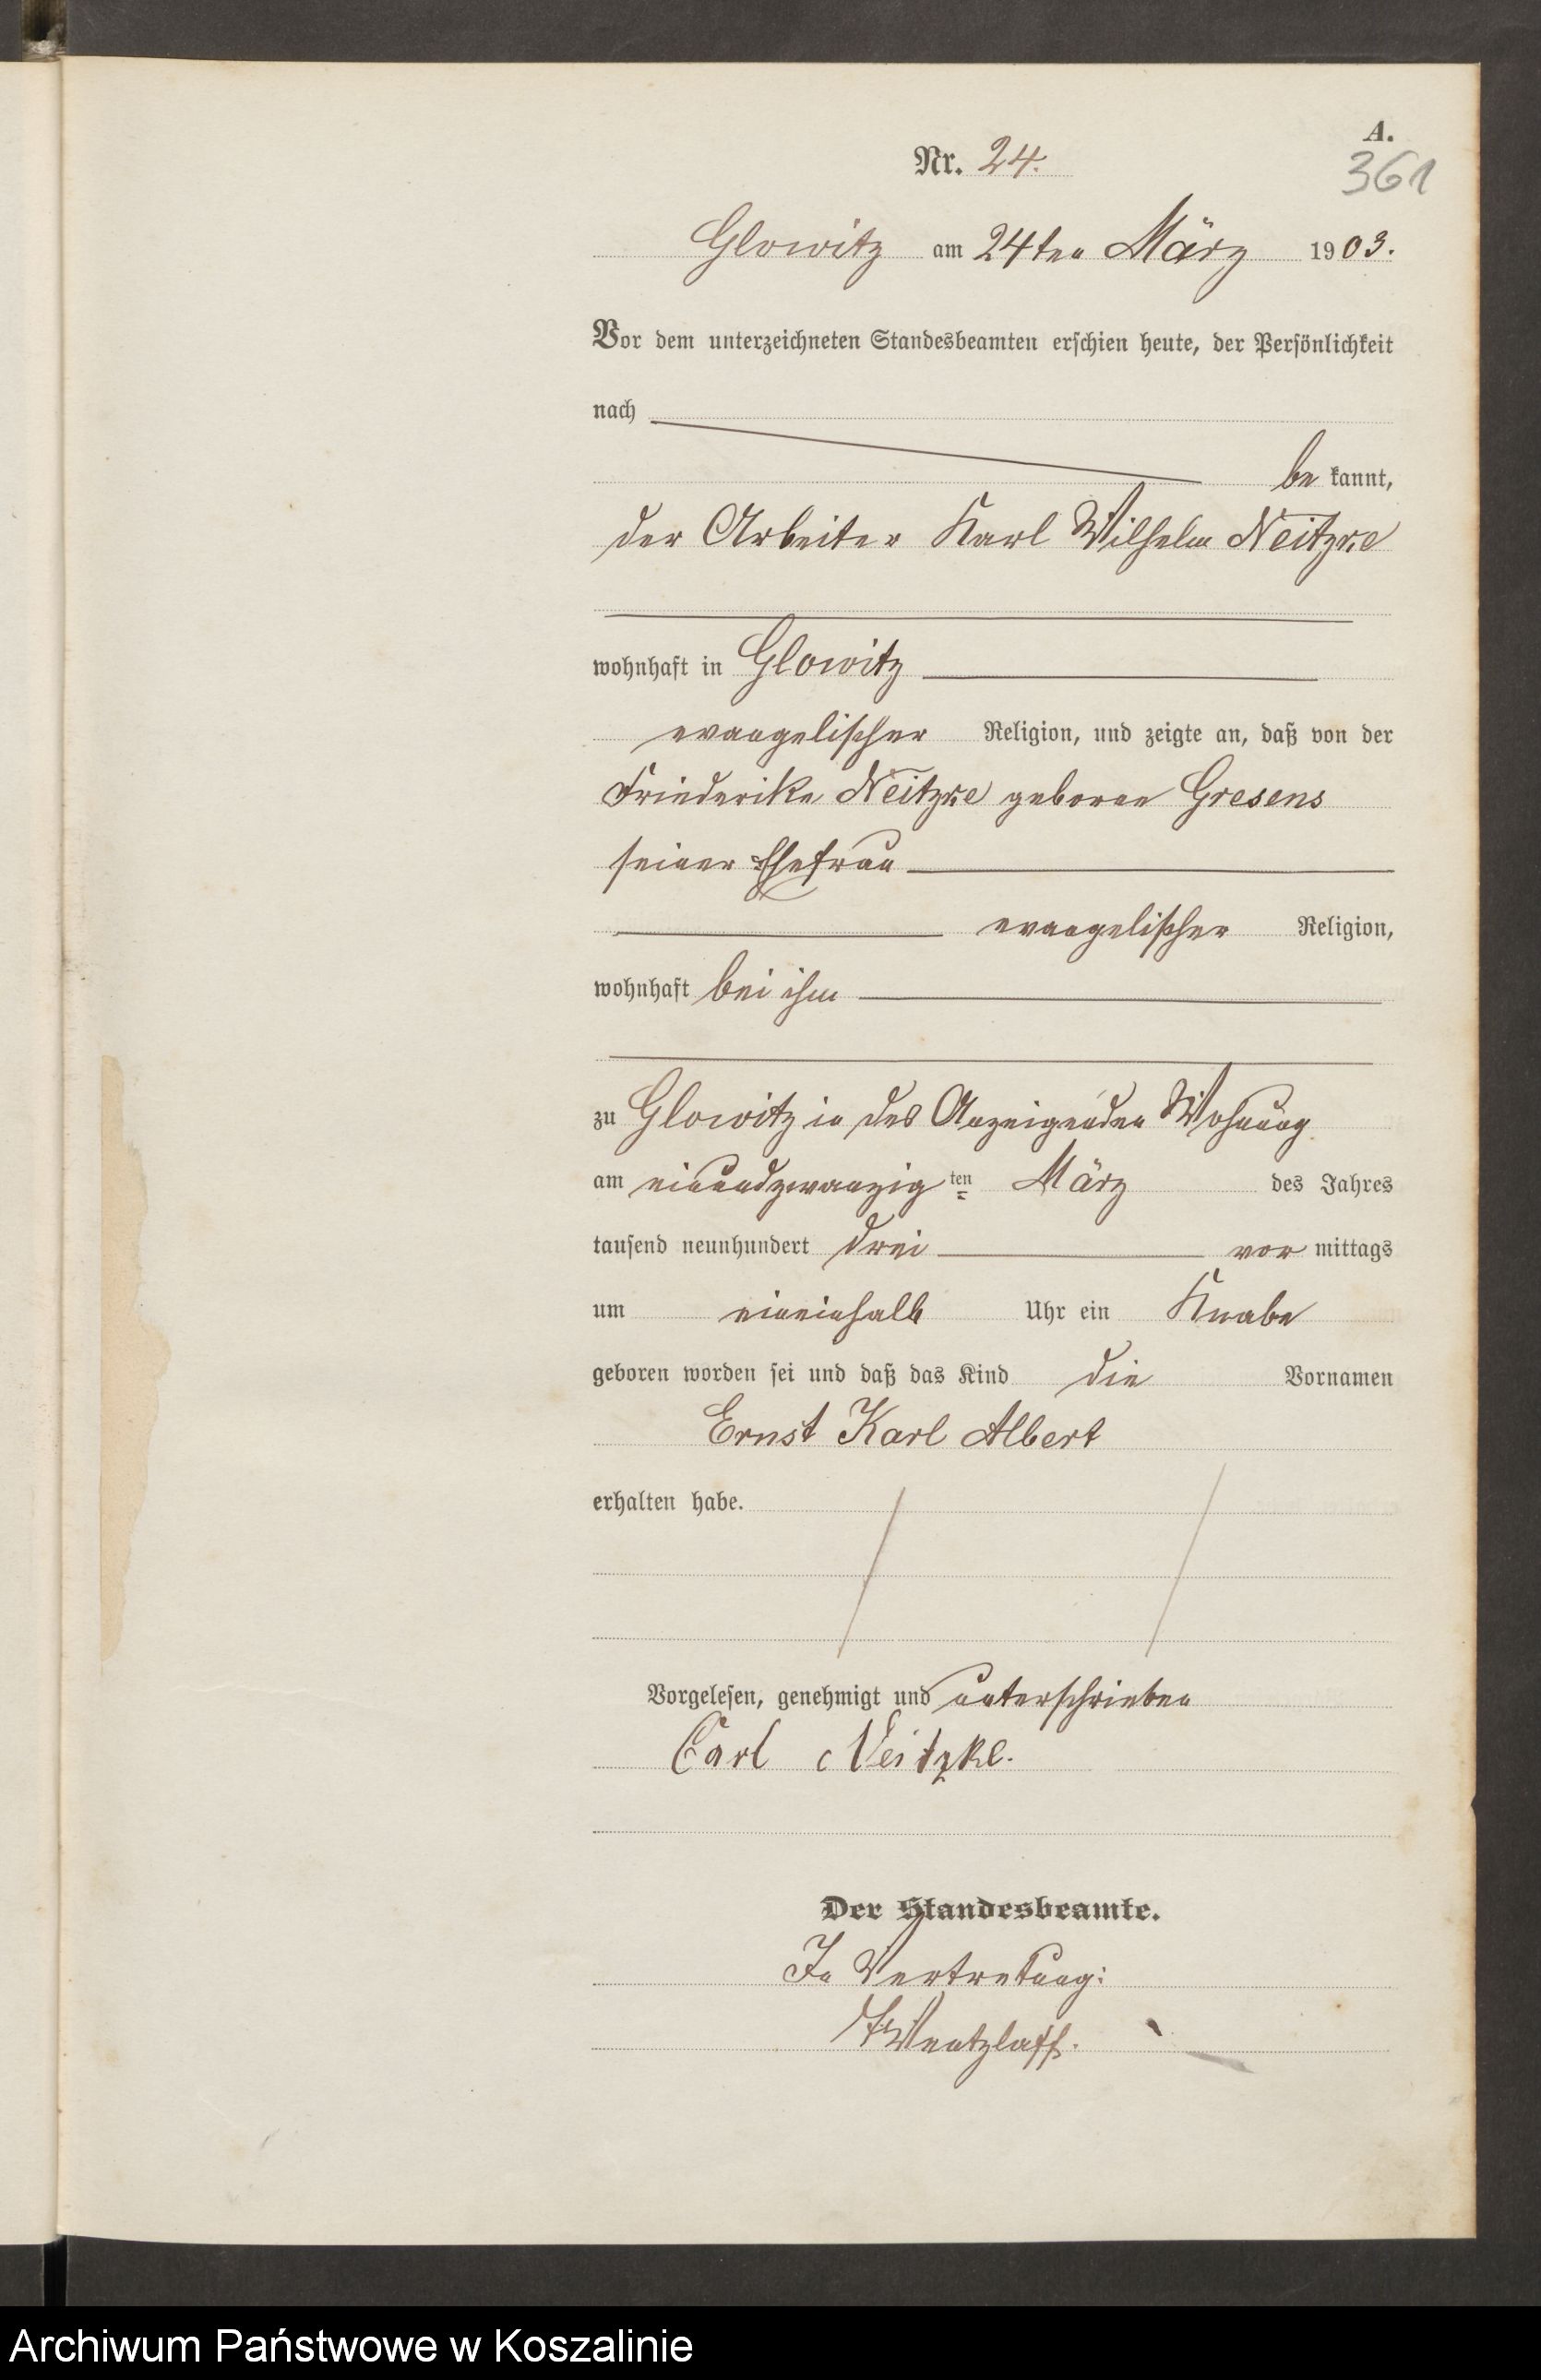 A.
Nr. 24.
361
Glowitz am 24ten März 1903.
Vor dem unterzeichneten Standesbeamten erschien heute, der Persönlichkeit
nach
be kannt,
der Arbeiter Karl Wilhelm Neitzke
wohnhaft in Glowitz
evangelischer Religion, und zeigte an, daß von der
Friederike Neitzke geborne Gresens
seiner Ehefrau
evangelischer Religion,
wohnhaft bei ihm
zu Glowitz in des Anzeigenden Wohnung
am einundzwanzig ten März des Jahres
tausend neunhundert drei vor mittags
um eineinhalb Uhr ein Knabe
geboren worden sei und daß das Kind die Vornamen
Ernst Karl Albert
erhalten habe.
Vorgelesen, genehmigt und unterschrieben
Carl Neitzke.
Der Standesbeamte.
In Vertretung:
Wentzlaff.
Archiwum Państwowe w Koszalinie